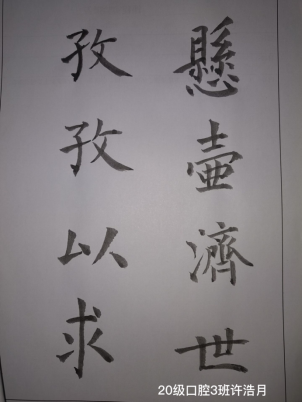 懸壺濟世
孜孜以求
20级口腔3班许浩月